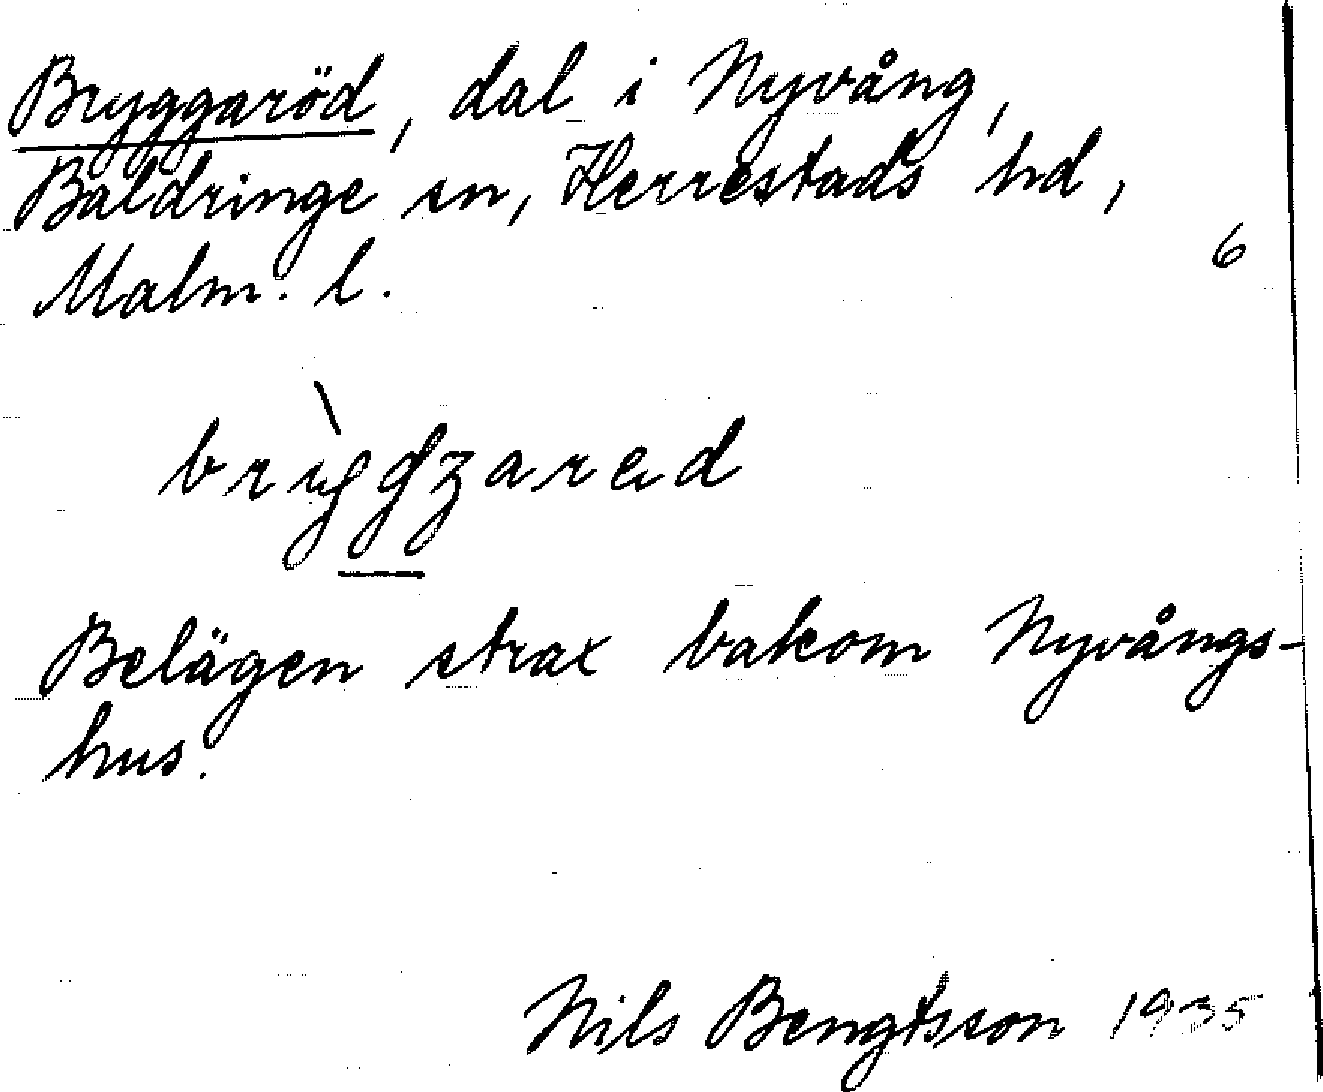 Bryggaröd, dal i Nyvång,
Baldringe sn, Herrestads hd,
Malm. l.
6
Belägen strax bakom Nyvångs-
hus.
Nils Bengtsson 1935